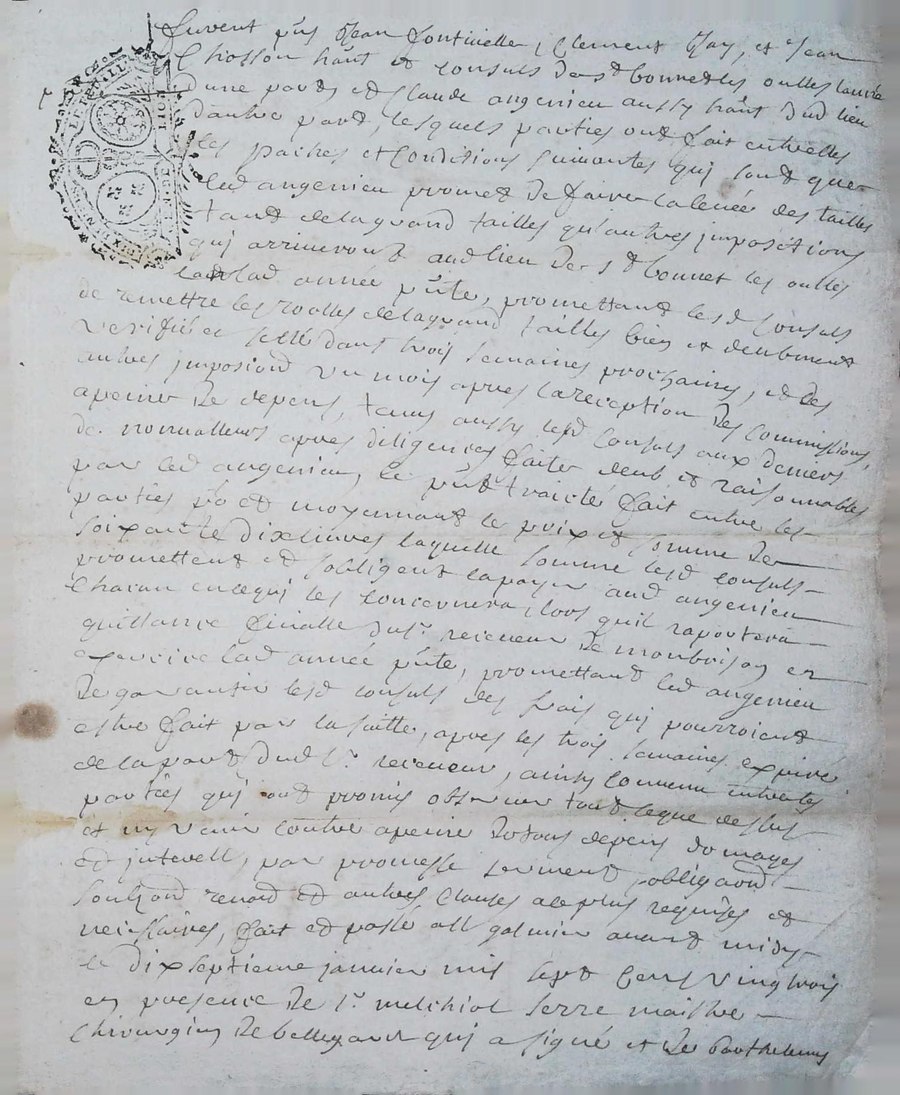 furent p͞ns Jean fontivielle, Clement Jay, et Jean
Chosson hānt et consuls de S^t bonnet les oulles
dune part, et Claude angenieu aussy hānt dud lieu
dautre part, lesquels parties ont fait entrelles
les paches et Conditions suivantes qui sont que
led angenieu promet de faire la levée des tailles
tant de la grand tailles qu'autres jmposition
qui arriveront aud lieu de S^t bonnet les oulles
lad année p͞nte, promettant lesd Consuls
de remettre les roolles de la grand tailles bien et deubment
veriffié et sellé dans trois semaines prochaines, et des
autres jmpositio͞n un mois apres la reception des Commissions,
a peine de depens, tenus aussy lesd Consuls aux deniers
de nonvalleurs apres diligences faites deub et raisonnables
par led angenieu, le p͞nt traicté fait entre les
parties po et moyennant le prix et somme de
soixante dix livres laquelle somme lesd Consuls
promettent et sobligent la payer aud angenieu
Chacun en ce qui les Concernera, lors quil raportera
quittance finalle du s^r. receveur de monbrison en
exercice lad année p͞nte, promettant led angenieu
de garantir lesd consuls des frais qui pourroient
estre fait par la suitte, apres les trois semaines expiré
de la part dud s^r. receveur, ainsy Convenu entre les
parties qui ont promis observer tout ce que dessus
et ny venir contre a peine de tous depens domages
et jnterest, par promesse serment, obligaon͞
soubz͞on renon͞ et autres Clauses a ce plus requises et
necessaires, fait et passé a S^t galmier avant midy
le dixseptieme janvier mil sept Cens vingtrois
en presence de s^r. melchiol serre maistre
Chirurgien de bellegard qui a signé et de barthelemy